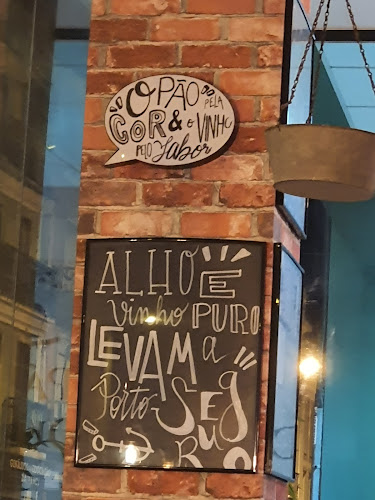 O PÃO PELA
COR & O VINHO
PELO Sabor
ALHO E
vinho PURO
LEVAM a
Porto-SEG
URO